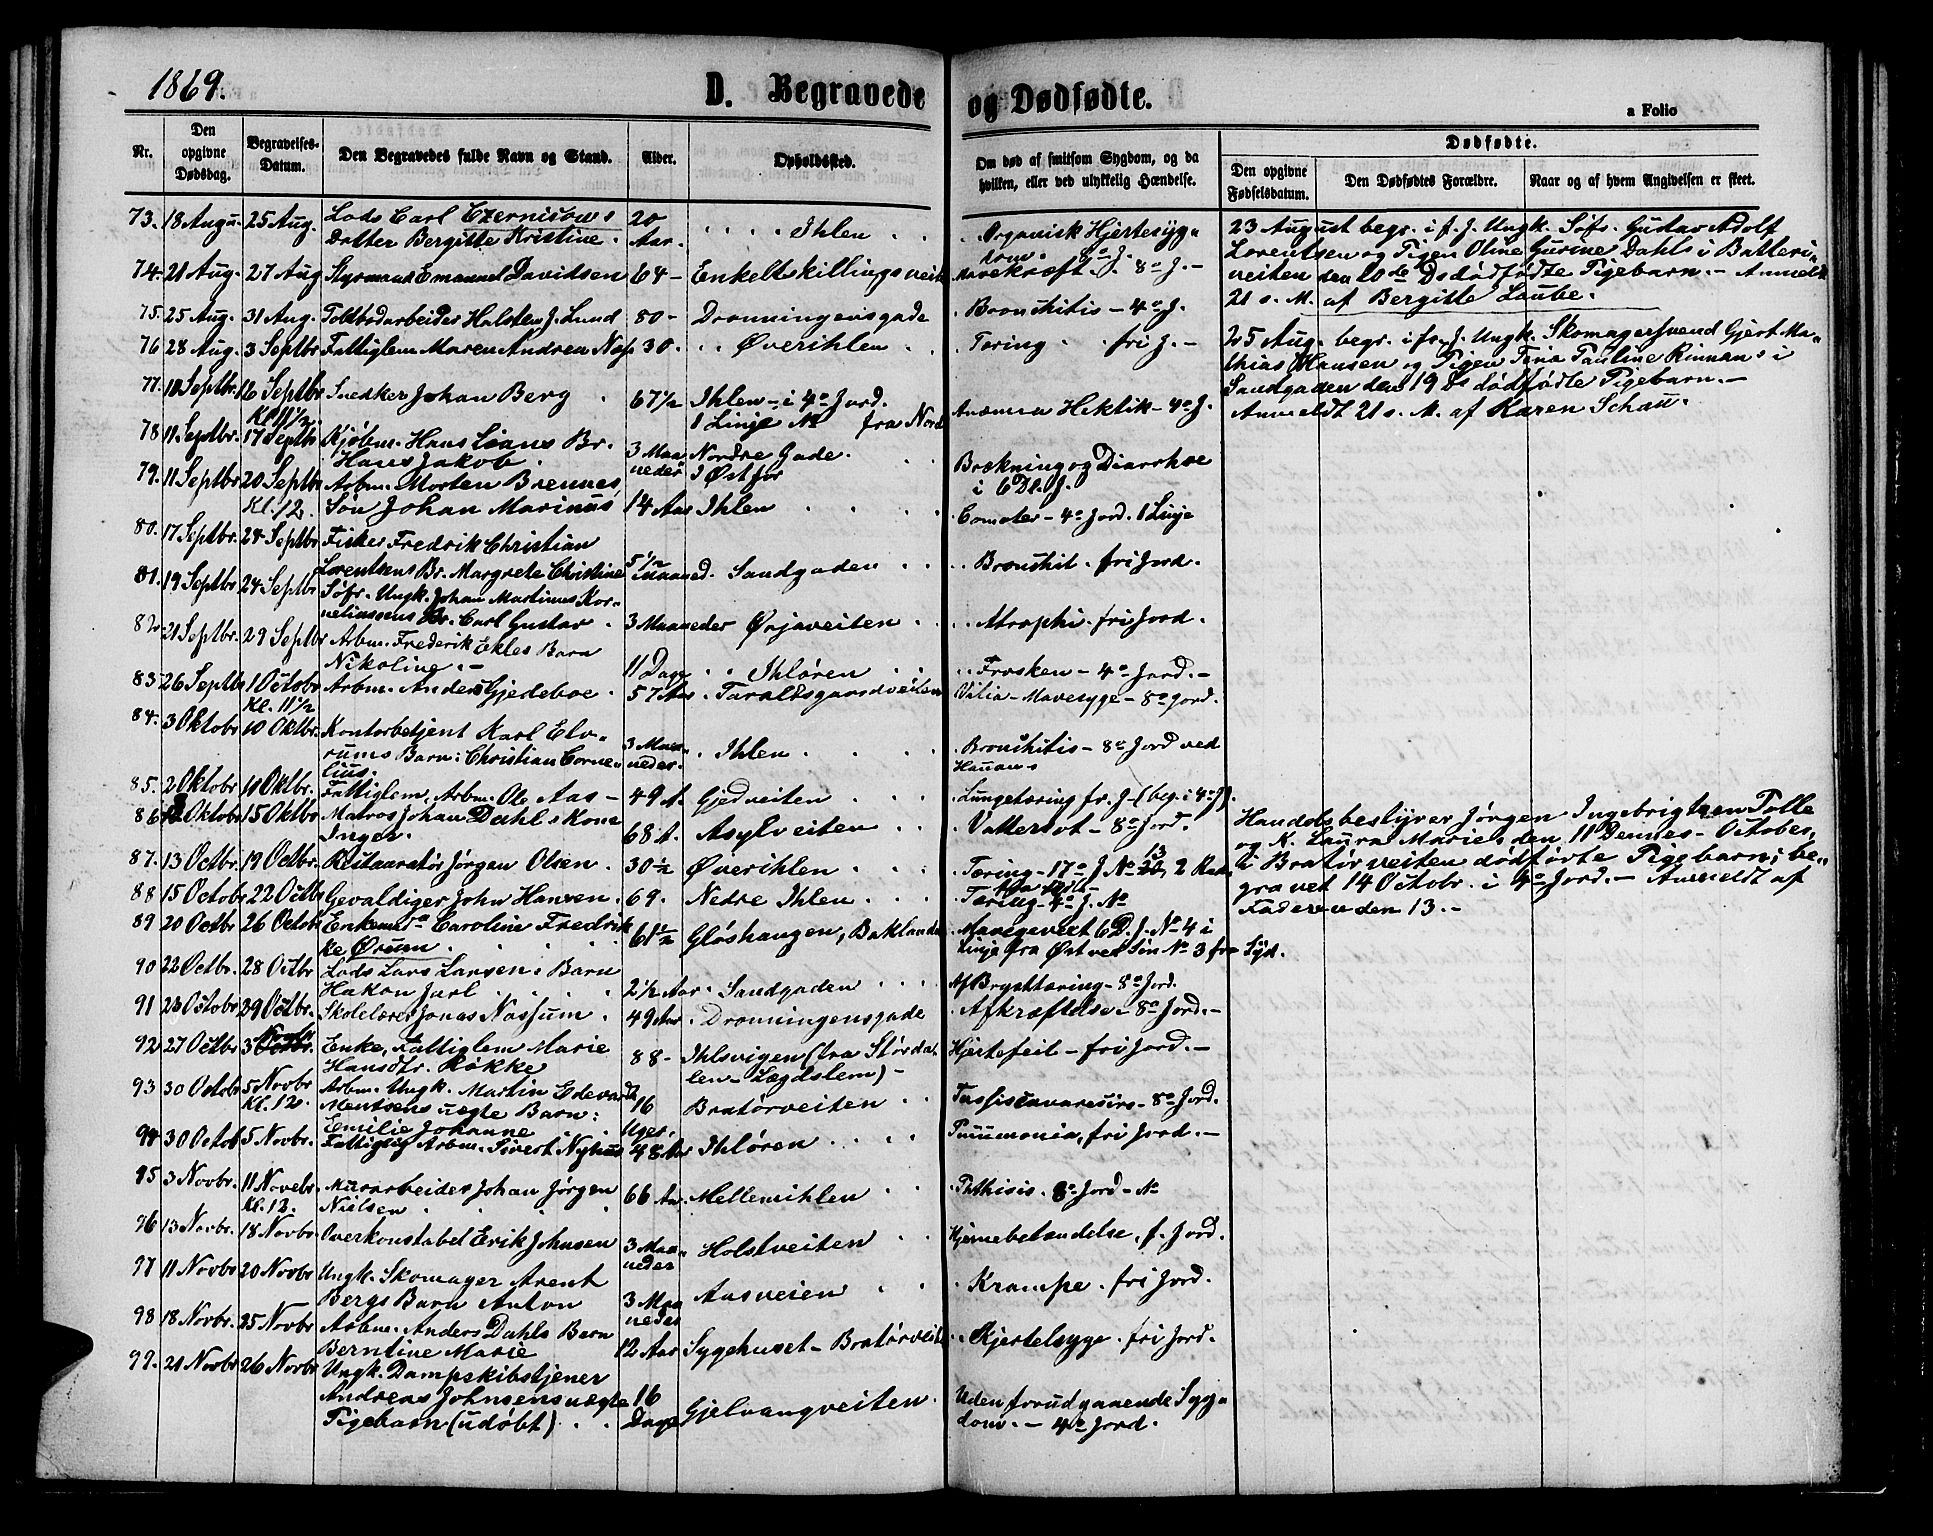 1869.
D. Begravede og Dødfødte.
a Folio
Nr.
Den opgivne Dødsdag.
Begravelses-Datum.
Den Begravedes fulde Navn og Stand.
Alder.
Opholdssted.
Om død af smitsom Sygdom, og da hvilken, eller ved ulykkelig Hændelse.
Dødfødte.
Den opgivne Fødselsdatum.
Den Dødfødtes Forældre.
Naar og af hvem Angivelsen er skeet.
73. 18 Augu. 25 Aug. Lods Carl Czernisows 20
Datter Bergitte Kristine. Aar. Ihlen Organisk Hjertesyg-
dom. 8de J.
74. 21 Aug. 27 Aug Styrmand Emanuel Davidsen 64 - Enkeltskillingsveit Mavekræft. 8de J. -
75. 25 Aug. 31 Aug. Toldbodarbeider Halsten J. Lund 80 - Dronningensgade Bronchitis - 4de J.
76 28 Aug. 3 Septbr Fattiglem Maren Andrea 30. Øverihlen Tæring fri J. -
77. 10 Septbr. 16 Septbr Snedker Johan Berg 67 1/2 Ihlen - i 4de Jord. Anæmia Hektik - 4de J.
Kl. 11 1/2. 1 Linje No fra Nord
78 11 Septbr. 17 Septbr Kjøbm. Hans Lians Br. 3 Maa- Nordre Gade. Brækning og Diarrhoe
Hans Jakob. neder 1 Øst for i 6 Dl. J.
79. 11 Septbr 20 Septbr Arbm. Morten Brennes
Kl. 12. Søn Johan Marinus 14 Aar Ihlen Comoter - 4de Jord. 1 Linje
80. 17 Septbr. 24 Septbr Fisker Fredrik Christian
Lorentsens Br. Margrete Christine 5 1/2 Maaned. Sandgaden Bronchit. fri Jord.
81. 19 Septbr 24 Septbr Søfr. Ungk. Johan Martinus Kor-
neliussens Br. Carl Gustav 3 Maaneder Ørjaveiten Atrophi. fri Jord.
82. 21 Septbr. 29 Septbr Arbm. Frederik Ekles Barn
Nikoline. - 11 Dage Ihløren Frosken - 4de Jord. -
83. 26 Septbr 1 Octobr Arbm. Anders Gjedeboe 57 Aar Taraldsgaardveiten Vilia - Mavesyge - 8de Jord.
Kl. 11 1/2
84. 3 Oktobr 10 Oktbr. Kontorbetjent Karl Elv-
rums Barn: Christian Corne- 3 Maa- Ihlen Bronchitis - 8de Jord ved
lius. neder.
85. 2 Oktobr 10 Oktbr. Fattiglem, Arbm. Ole Aas - 49 A. Gjedveiten Lungetæring fr. J - (beg. i 4de J).
86 Oktobr 15 Oktbr Matros Johan Dahls Kone
Inger. 68 A. Asylveiten Vattersot - 8de Jord.
87. 13 Octbr. 19 Octbr. Restauratør Jørgen Olsen 30 1/2 Øverihlen Tæring - 17de J. No 13 2 Rad.
88 15 Octobr 22 Octbr Gevaldiger John Hansen 69. Nedre Ihlen Tæring - 4de J. No
89 20 Octbr. 26 Octobr Enkemd. Caroline Fredrik- 61 1/2 Gløshaugen, Baklandet Mavegevext 6 D. J. No 4 i
ke Ørum Linje fra Øst ved Søn No 3 fra Syd.
90 22 Octbr. 28 Octbr Lods Lars Larsens Barn
Hakon Jarl 2 1/2 Aar Sandgaden Af Brysttæring - 8de Jord.
91 23 Octobr 29 Octbr. Skolelærer Jonas Nossum 49 Aar Dronningensgade Afkræftelse - 8de Jord. -
92 27 Octbr 3 Novbr. Enke, Fattiglem Marie 88 - Ihlsvigen (fra Størdal- Hjertefeil - fri Jord. -
Hansdtr. Rokke len - Lægdslem) -
93 30 Octobr 5 Novbr Arbm. Ungk. Martin Edevard
Kl. 12. Mentsens uægte Barn: 16 Bratørveiten - 8de Jord.
Emilie Johanne Uger.
94 30 Octob 5 Novbr. Fattiglem Arbm. Sivert Nyhus 48 Aar Ihløren Pneumonia, fri Jord. -
95 3 Novbr. 11 Novebr. Murarbeider Johan Jørgen 66 Aar. Mellemihlen Phthisis. 8de Jord - No
Kl. 12. Nielsen
96 13 Novbr. 18 Novbr. Overkonstabel Erik Johnsen 3 Maa- Holstveiten Hjernebetændelse, f. Jord.
neder
97 11 Novbr 20 Novbr Ungk. Skomager Arent
Bergs Barn Anton 3 Maa Aasveien Krampe. fri Jord.
neder
98 18 Novbr. 25 Novbr Arbm. Anders Dahls Barn
Berntine Marie 12 Aar Sygehuset - Bratørveit Kjertelsyge. fri Jord.
99. 21 Novbr 26 Novbr Ungk. Dampskibstjener
Andreas Johnsens uægte 16 Gjelvangveiten Uden forudgaaende Syg-
Pigebarn (udøbt) Dage dom. - 4de Jord.
23 August begr. i f. J. Ungk. Søfr. Gustav Adolf
Lorentsen og Pigen Oline Gurine Dahls i Batteri-
veiten den 20de Ds dødfødte Pigebarn. - Anmeldt
21 s. M. af Bergitte Laube.
25 Aug. begr. i fr. J. Ungk. Skomagersvend Gjert Ma-
thias Hansen og Pigen Tina Pauline Rinnans i
Sandgaden den 19 Ds dødfødte Pigebarn. -
Anmeldt 21 s. M. af Karen Schau.
Handelsbestyrer Jørgen Ingebrigtsen Tolle
og K. Laura Maries den 11 Dennes - October,
i Bratørveiten dødfødte Pigebarn; be-
gravet 14 Octobr. i 4de Jord. - Anmeldt af
Faderen den 13. -